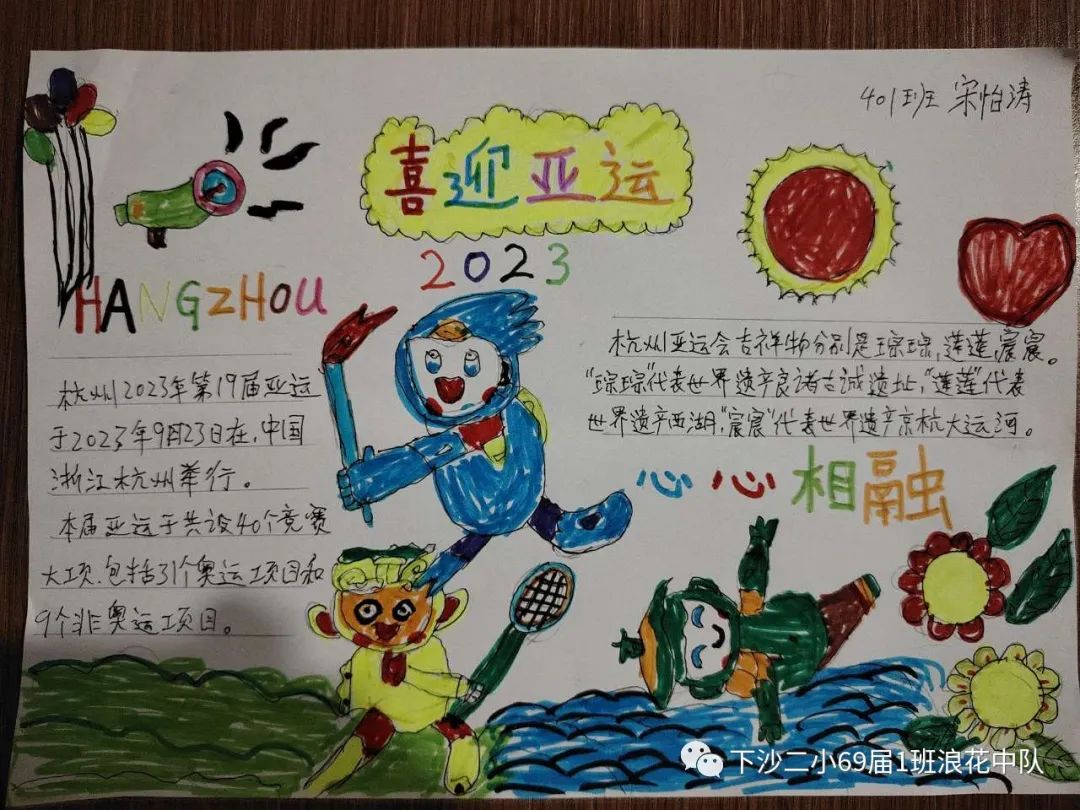 401班 宋怡涛
喜迎亚运
2023
HANGZHOU
杭州2023年第19届亚运
于2023年9月23日在,中国
浙江杭州举行。
本届亚运于共设40个竞赛
大项、包括31个奥运项目和
9个非奥运项目。
杭州亚运会吉祥物分别是琮琮,莲莲,宸宸。
"琮琮"代表世界遗产良诸古诚遗址,"莲莲"代表
世界遗产西湖,"宸宸"代表世界遗产京杭大运河。
心心相融
下沙二小69届1班浪花中队